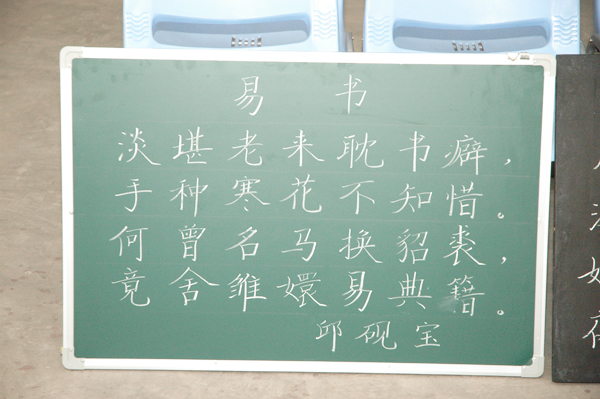 易 书
淡堪老来耽书癖,
手种寒花不知惜。
何曾名马换貂裘,
竟舍雏嬛易典籍。
邱砚宝